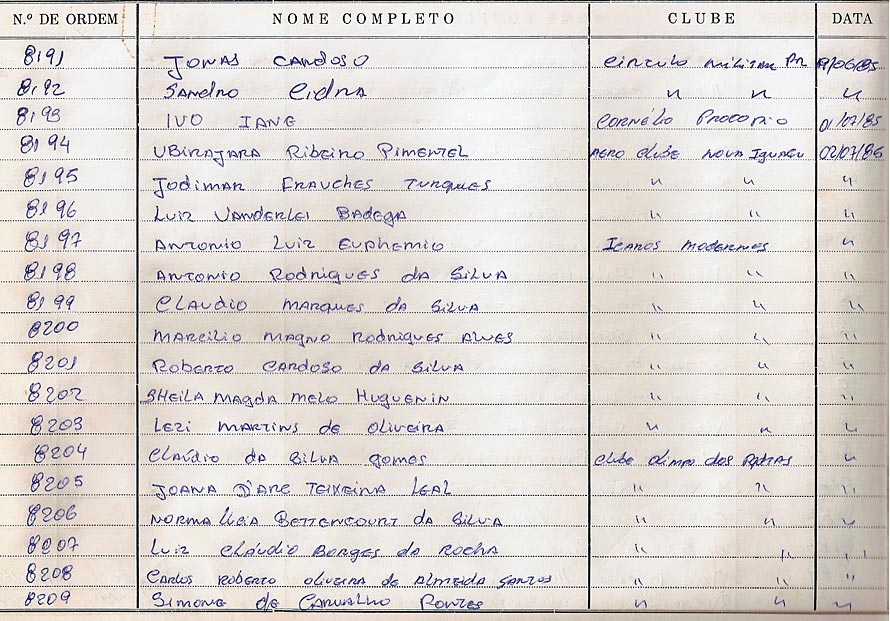 N.º DE ORDEM NOME COMPLETO CLUBE DATA
8191 JONAS CARDOSO CIRCULO MILITAR PR 19/06/85
8192 SANDRO CIDRA " " "
8193 IVO IANE CORNÉLIO PROCOPIO 01/07/85
8194 UBIRAJARA RIBEIRO PIMENTEL AERO CLUBE NOVA IGUAÇU 02/07/85
8195 JODIMAR FRAUCHES TURQUES " " "
8196 LUIZ VANDERLEI BADEGA " " "
8197 ANTONIO LUIZ EUPHEMIO ICAROS MODERNOS "
8198 ANTONIO RODRIGUES DA SILVA " " "
8199 CLAUDIO MARQUES DA SILVA " " "
8200 MARCILIO MAGNO RODRIGUES ALVES " " "
8201 ROBERTO CARDOSO DA SILVA " " "
8202 SHEILA MAGDA MELO HUGUENIN " " "
8203 LEZI MARTINS DE OLIVEIRA " " "
8204 CLAÚDIO DA SILVA GOMES CLUBE OLIMPO DOS "
8205 JOANA D'ARC TEIXEIRA LEAL " " "
8206 NORMA LÍGIA BETTENCOURT DA SILVA " " "
8207 LUIZ CLÁUDIO BORGES DA ROCHA " " "
8208 CARLOS ROBERTO OLIVEIRA DE ALMEIDA SANTOS " " "
8209 SIMONE DE CARVALHO PONTES " " "